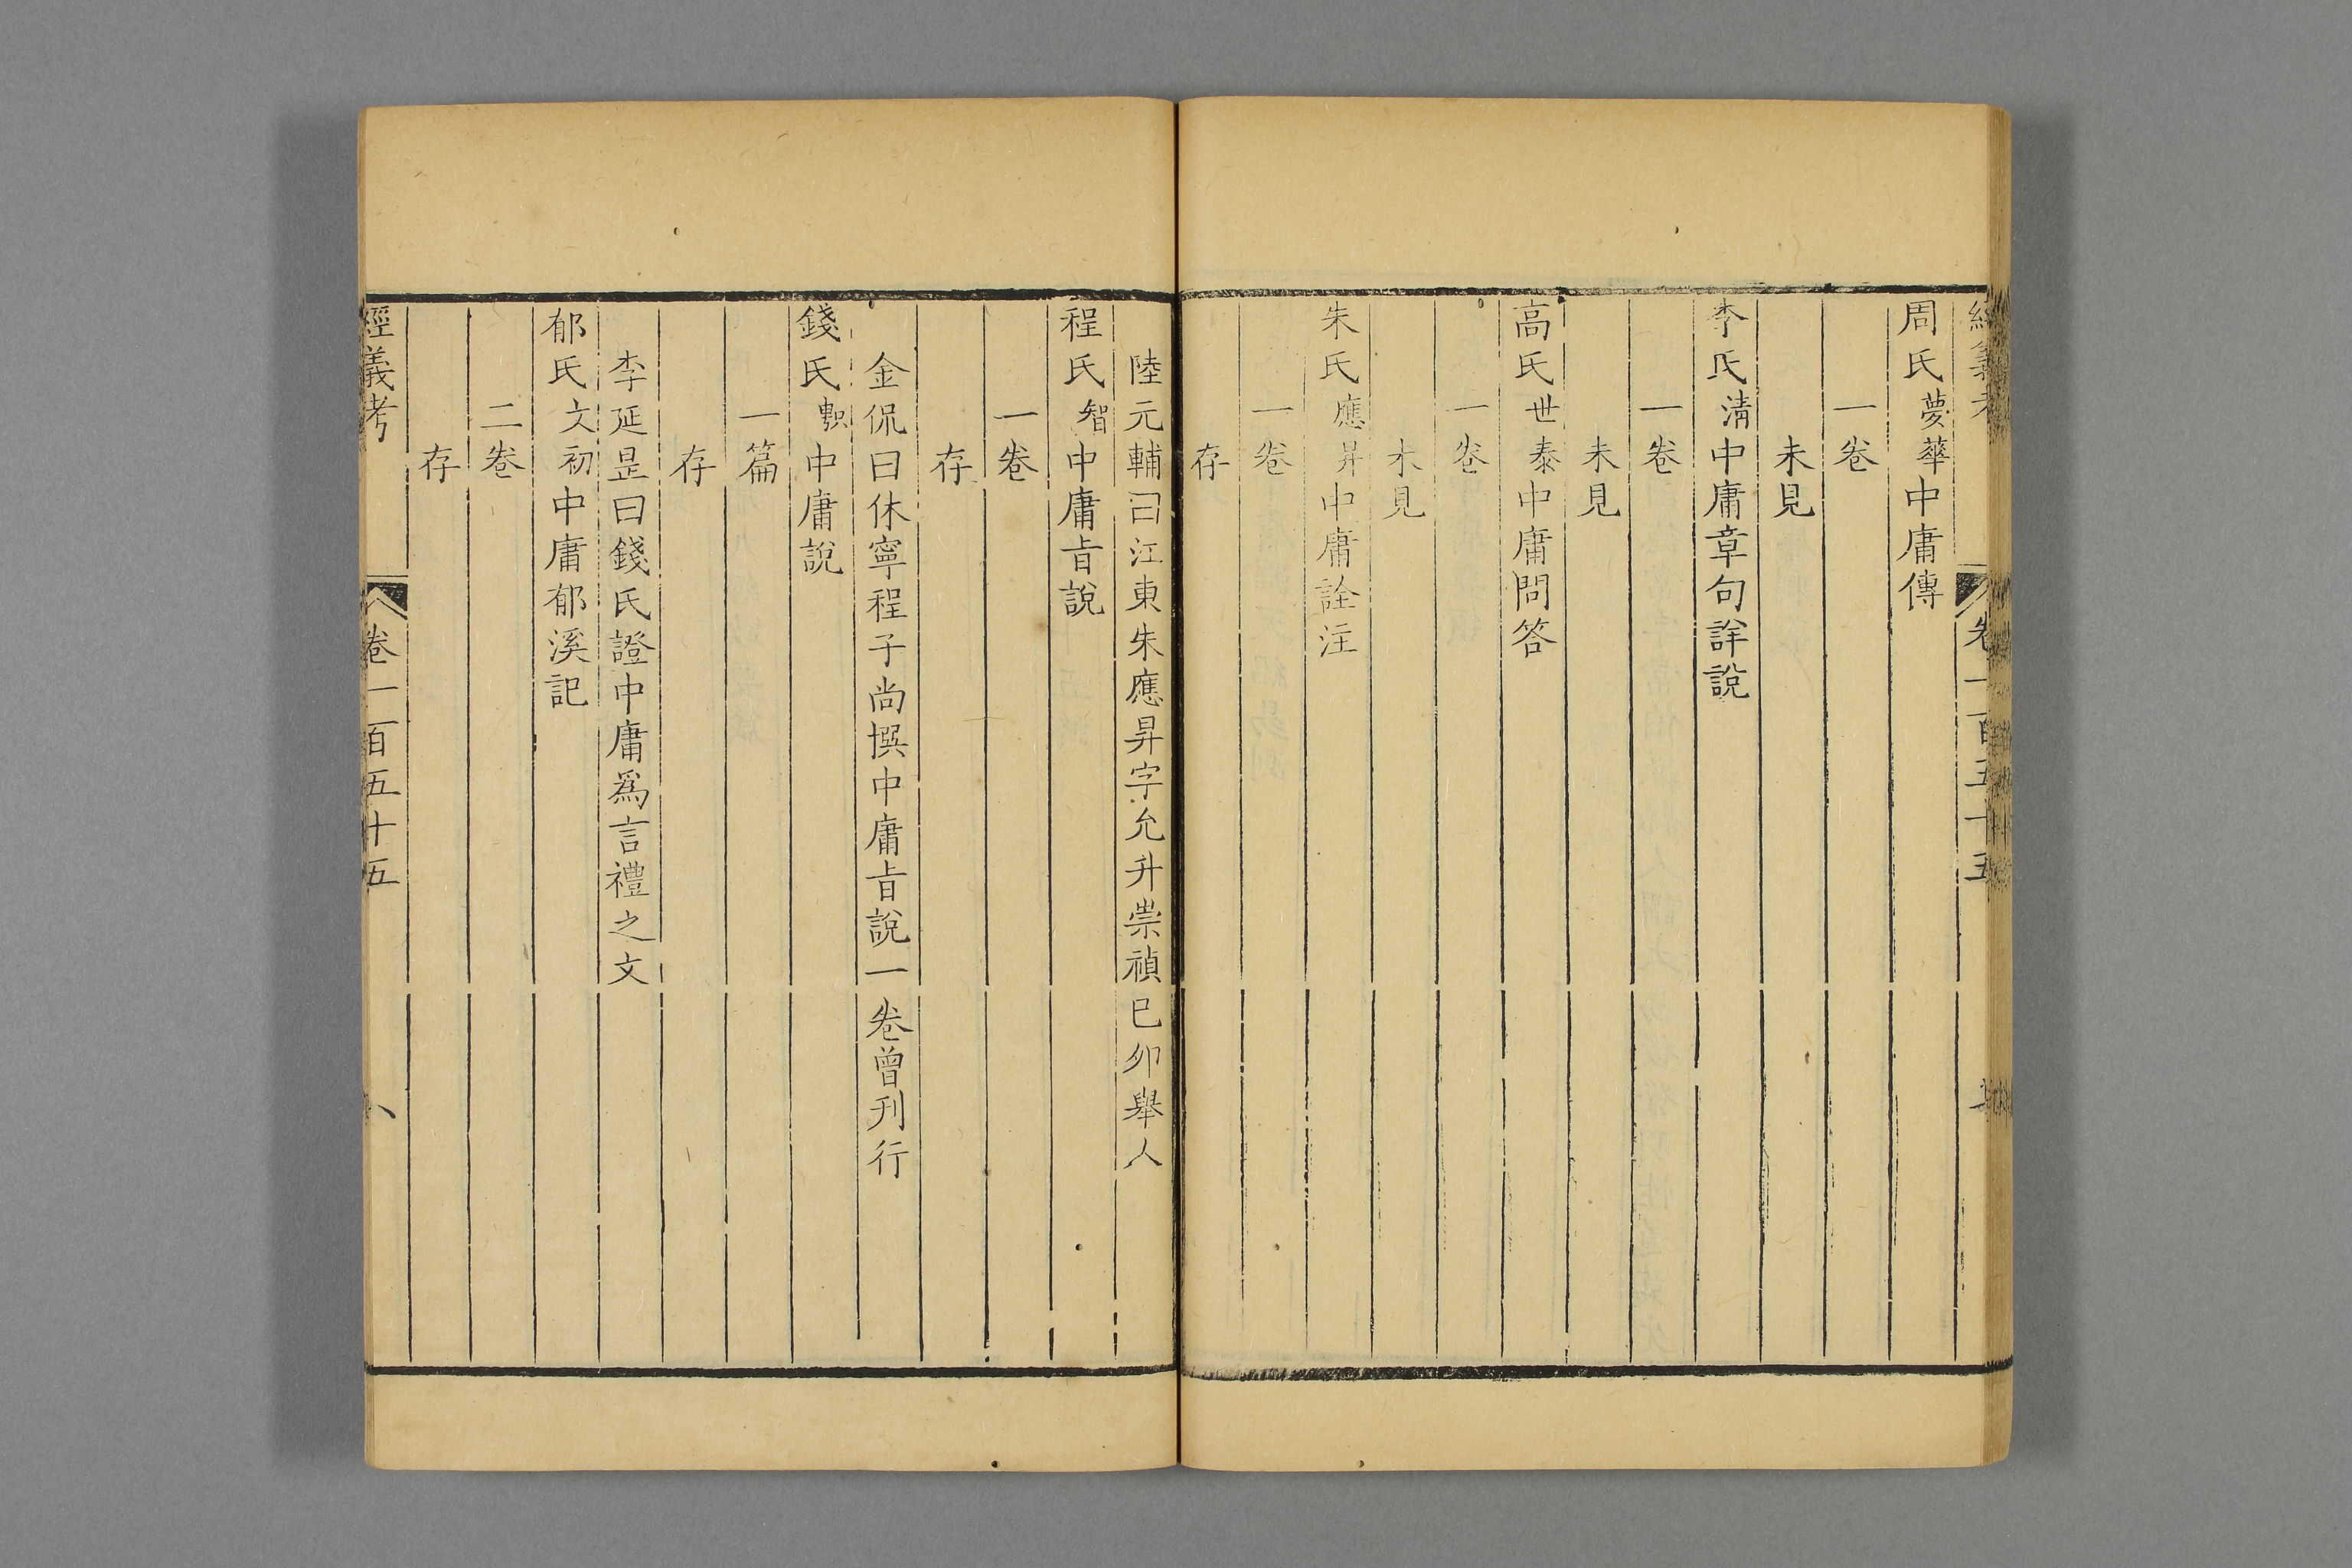 周氏夢華中庸傳
一卷
未見
李氏清中庸章句詳說
一卷
未見
高氏世泰中庸問答
一卷
未見
朱氏應昇中庸詮注
一卷
存
陸元輔曰江東朱應昇字允升崇禎己卯舉人
程氏智中庸旨說
一卷
存
金侃曰休寧程子尚撰中庸旨說一卷曾刊行
錢氏中庸說
一篇
存
李延昰曰錢氏證中庸為言禮之文
郁氏文初中庸郁溪記
二卷
存
經義考
卷一百五十五
八